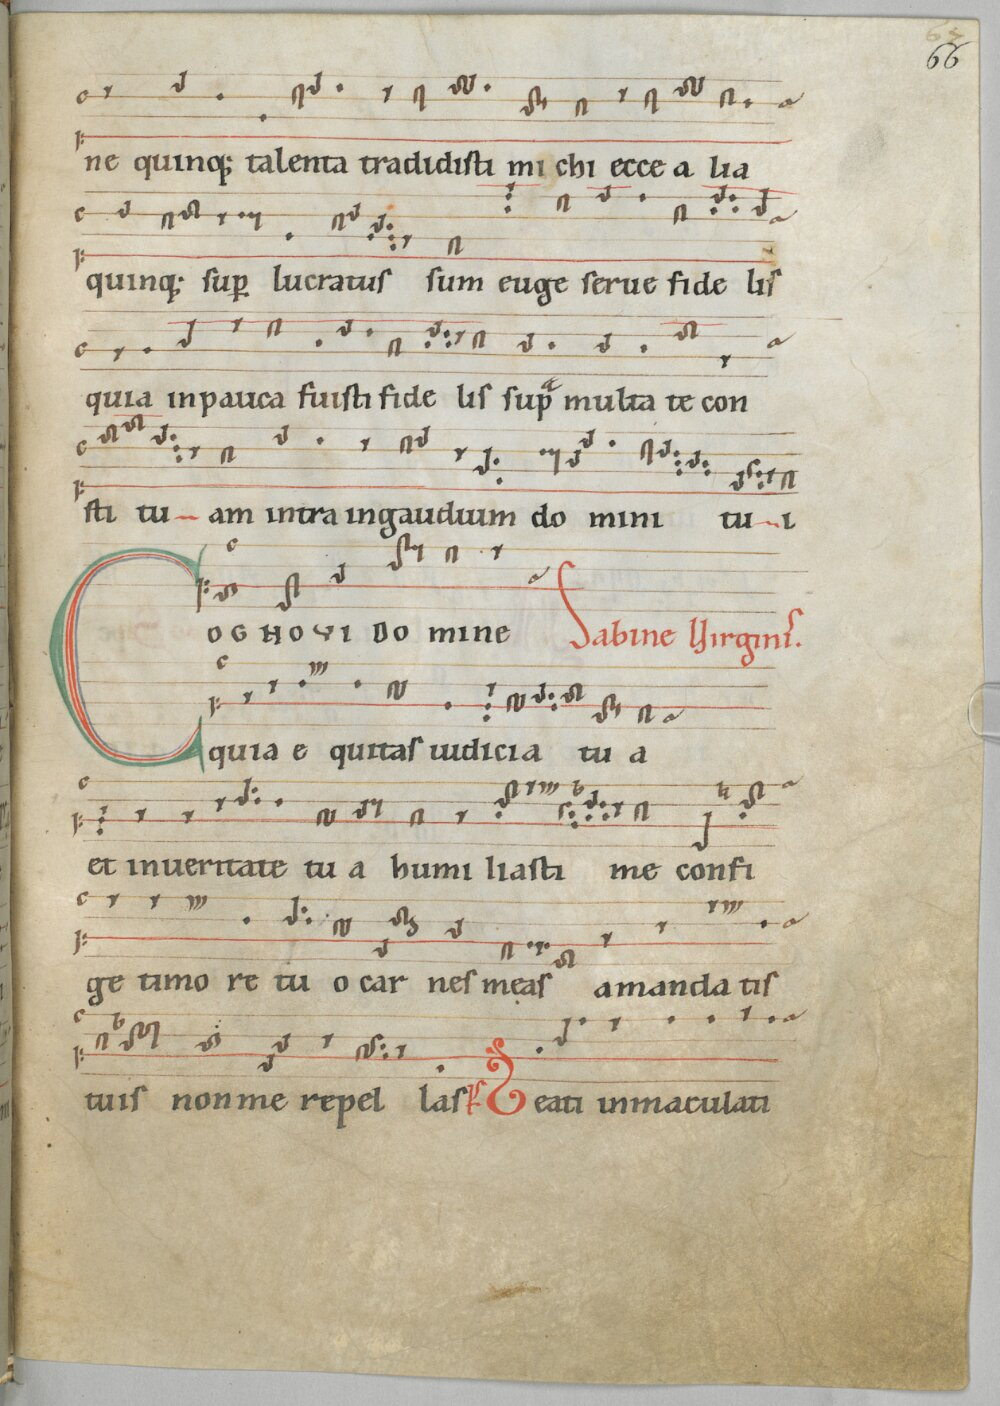 66
ne quinq; talenta tradidisti mi chi ecce a lia
quinq; sup lucratus sum euge serue fide lis
quia inpauca fuisti fide lis sup multa te con
sti tu am intra ingaudium do mini tu i
COGNOVI DO mine Sabine Virginis.
quia e quitas iudicia tu a
et inueritate tu a humi liasti me confi
ge timo re tu o car nes meas amanda tis
tuis non me repel las Ps Beati inmaculati